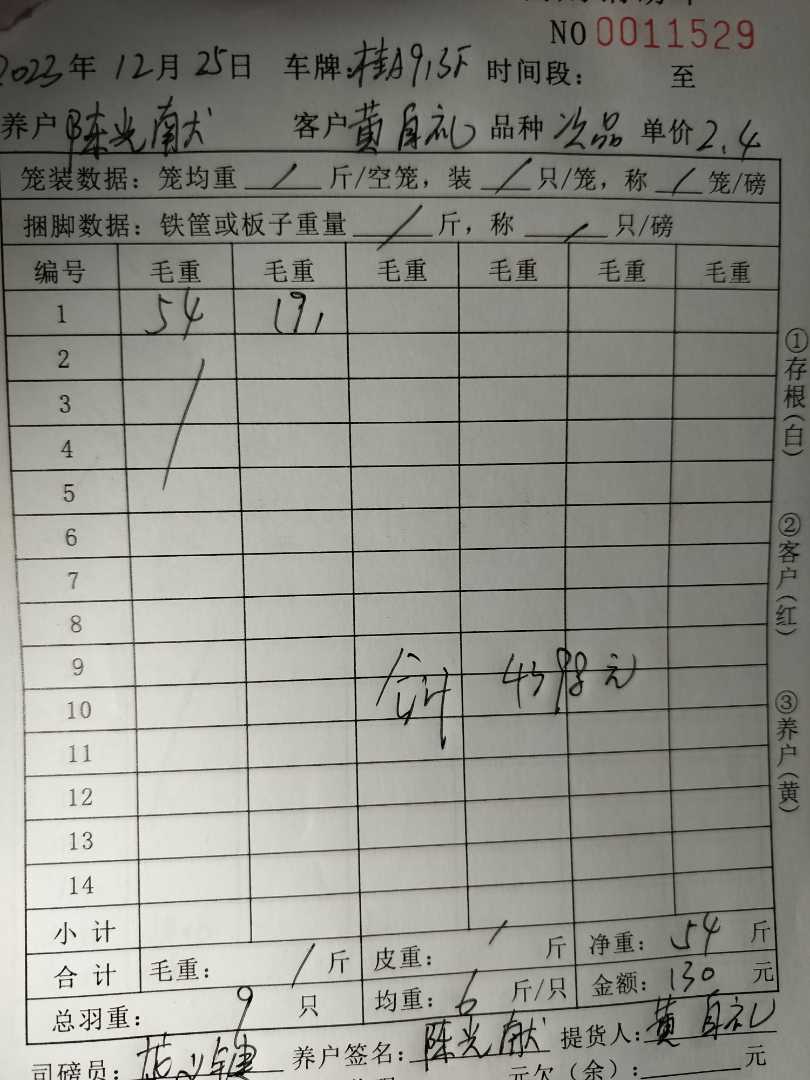 NO 0011529
2023年 12月 25日 车牌:桂A913F 时间段: 至
养户 陈光献 客户 黄自礼 品种 次品 单价 2.4
笼装数据: 笼均重 / 斤/空笼, 装 / 只/笼, 称 / 笼/磅
捆脚数据: 铁筐或板子重量 / 斤, 称 / 只/磅
编号 毛重 毛重 毛重 毛重 毛重 毛重
1 54 191
2
3
4
5
6
7
8
9
10 合计 4398元
11
12
13
14
小计
合计 毛重: / 斤 皮重: / 斤 净重: 54 斤
总羽重: 9 只 均重: 6 斤/只 金额: 130 元
司磅员: 养户签名: 陈光献 提货人: 黄自礼
元欠(余): 元
①存根(白)
②客户(红)
③养户(黄)